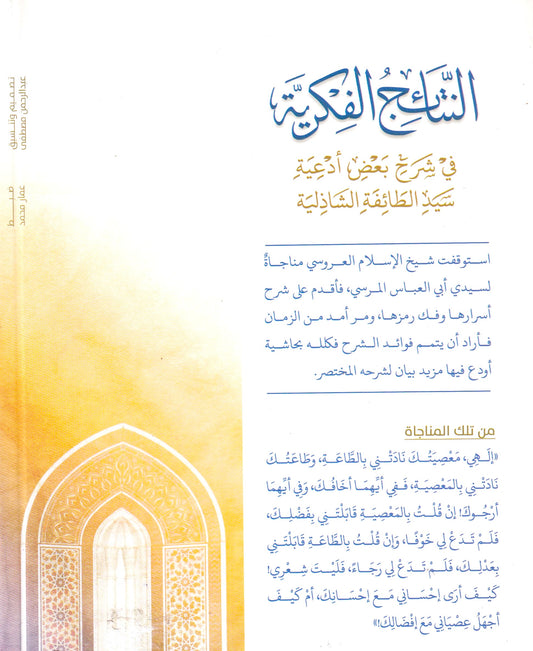 النتائج الفكرية
في شرح بعض أدعية
سيد الطائفة الشاذلية
استوقفت شيخ الإسلام العروسي مناجاةٌ
لسيدي أبي العباس المرسي، فأقدم على شرح
أسرارها وفك رمزها، ومر أمد من الزمان
فأراد أن يتمم فوائد الشرح فكلله بحاشية
أودع فيها مزيد بيان لشرحه المختصر.
من تلك المناجاة
«إلَهِي، مَعْصِيَتُكَ نَادَتْنِي بِالطَّاعَةِ، وَطَاعَتُكَ
نَادَتْنِي بِالمَعْصِيَةِ، فَفِي أيِّهِمَا أخَافُكَ، وَفِي أيِّهِمَا
أرْجُوكَ! إنْ قُلْتُ بِالمَعْصِيَةِ قَابَلْتَنِي بِفَضْلِكَ،
فَلَمْ تَدَعْ لِي خَوْفًا، وَإنْ قُلْتُ بِالطَّاعَةِ قَابَلْتَنِي
بِعَدْلِكَ، فَلَمْ تَدَعْ لِي رَجَاءً، فَلَيْتَ شِعْرِي!
كَيْفَ أرَى إحْسَانِي مَعَ إحْسَانِكَ، أمْ كَيْفَ
أجْهَلُ عِصْيَانِي مَعَ إفْضَالِكَ!»
تصميم وتنسيق
عبدالرحمن مصطفى
خط
عمار محمد